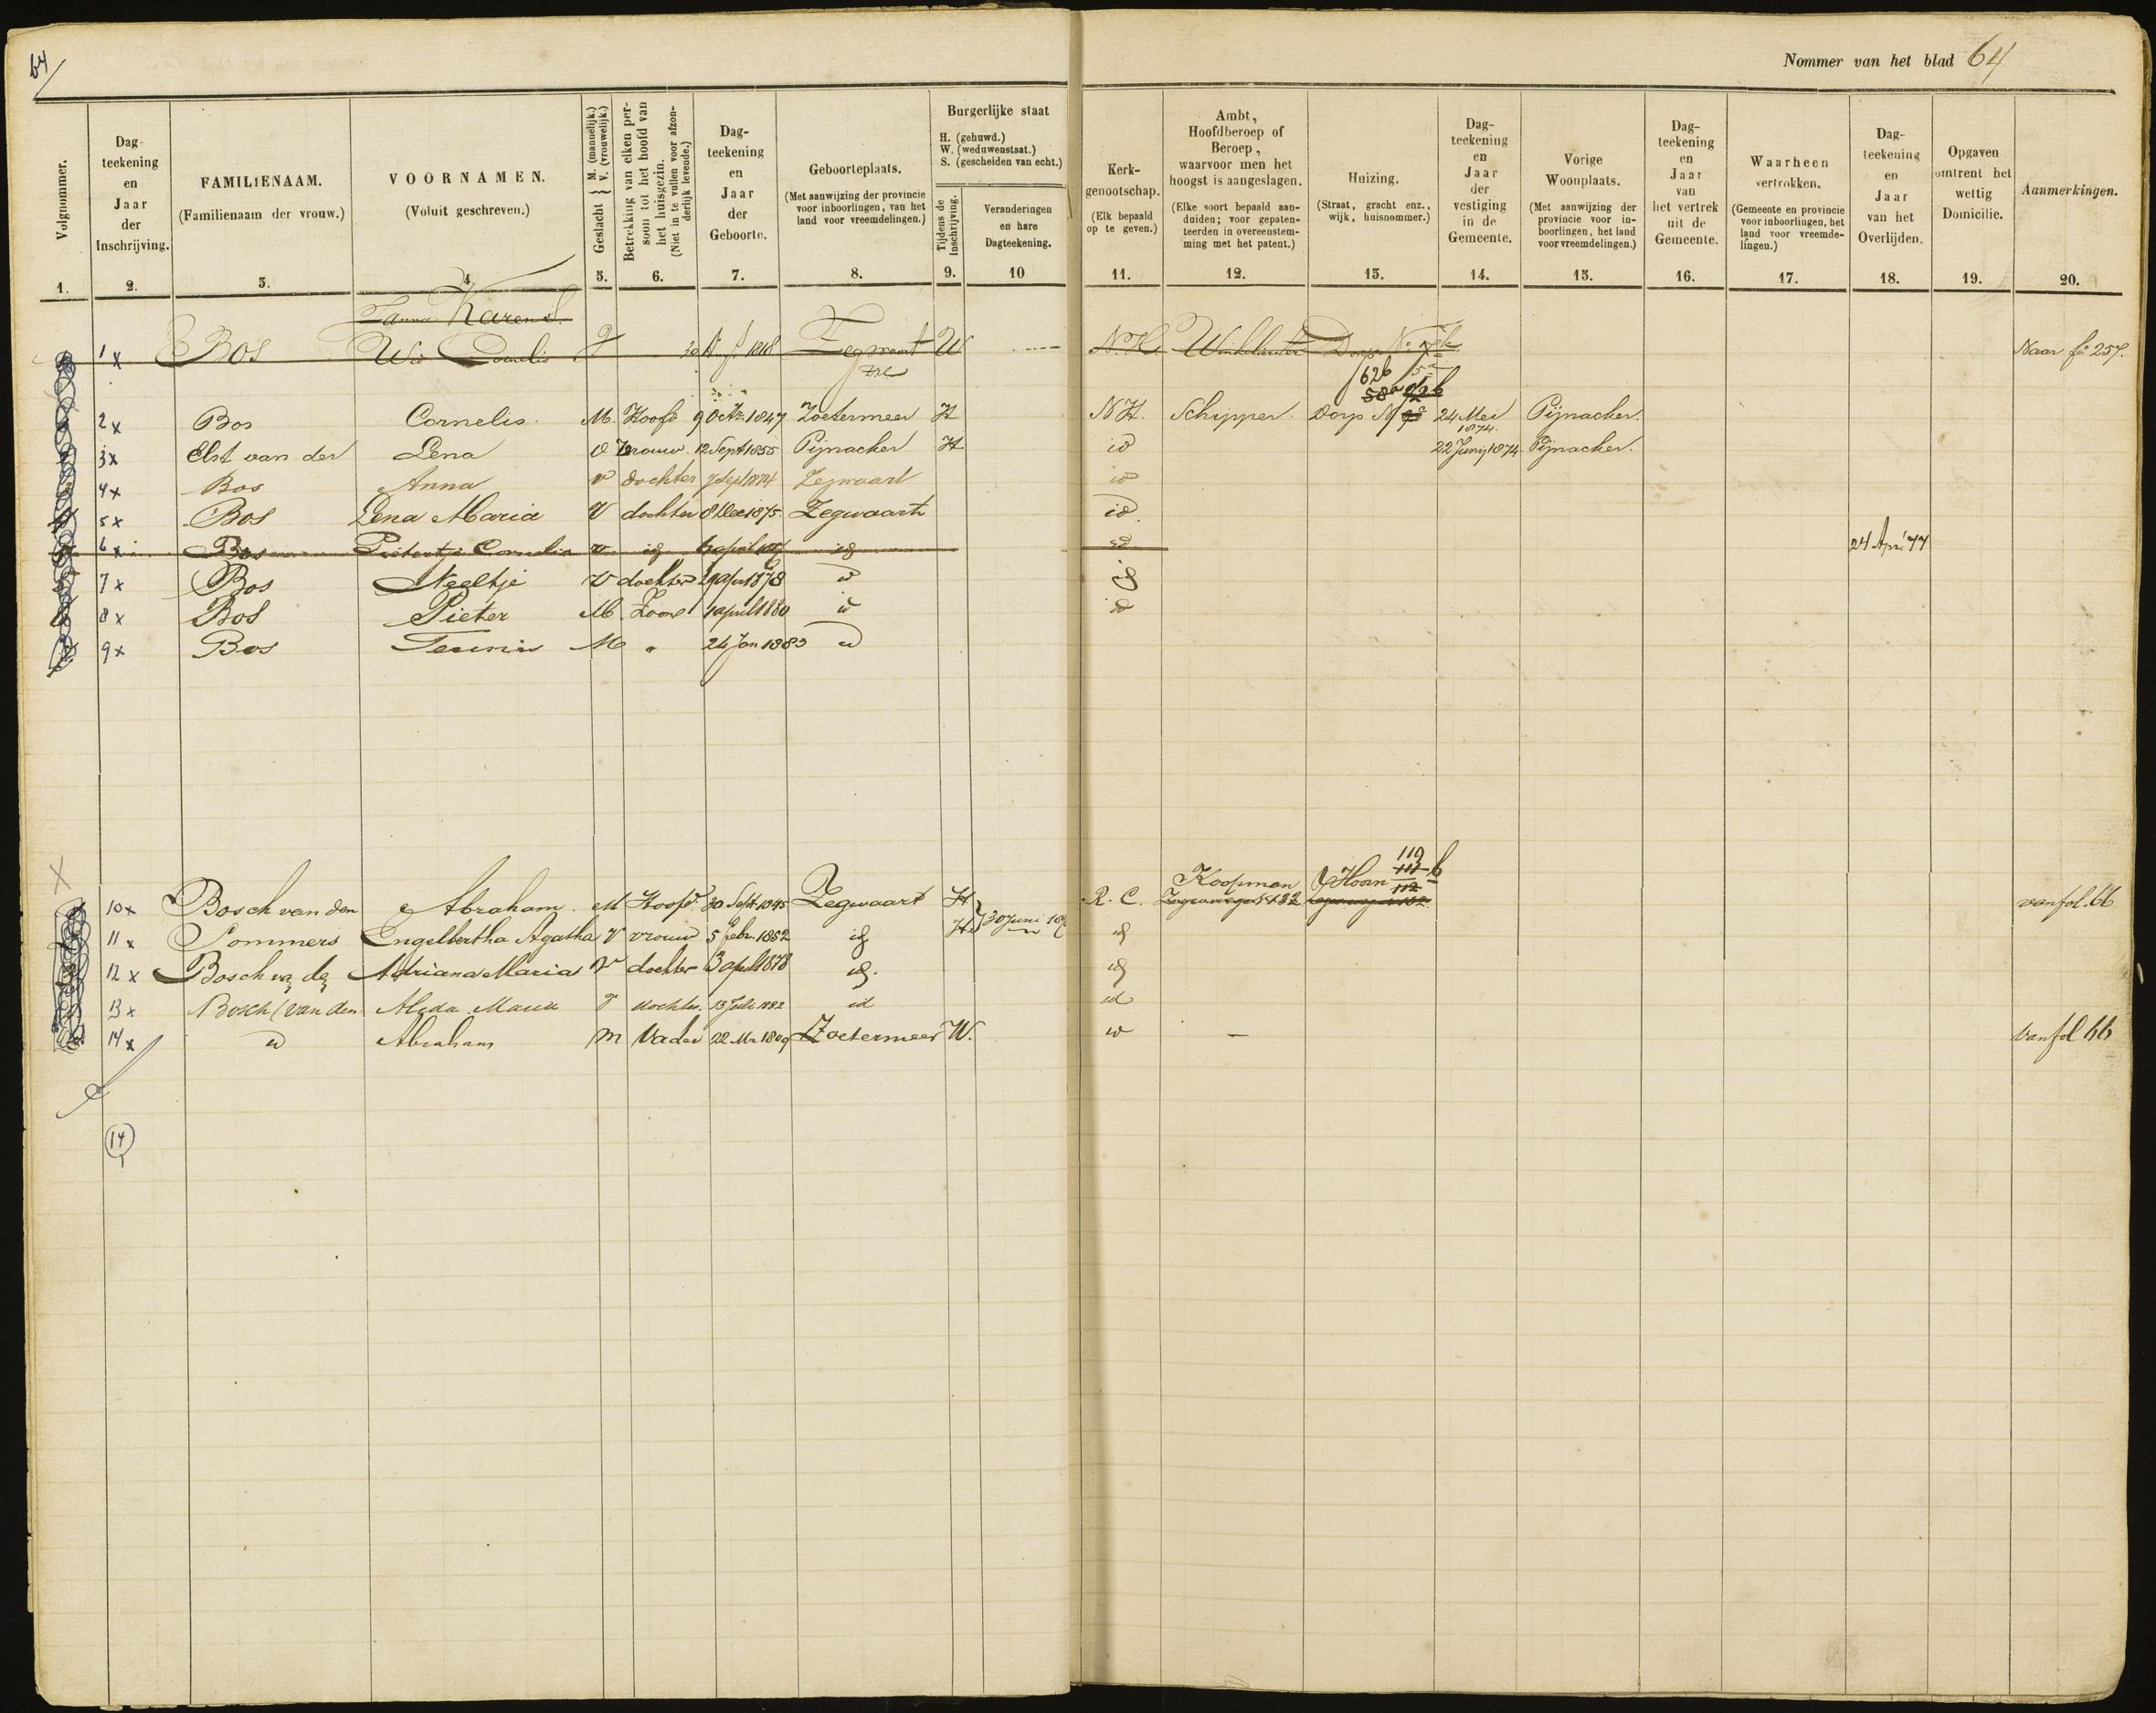 64
Nommer van het blad 64
Volgnommer.
Dag-teekening en Jaar der Inschrijving.
FAMILIENAAM. (Familienaam der vrouw.)
VOORNAMEN. (Voluit geschreven.)
Geslacht { M. (mannelijk.) V. (vrouwelijk.)
Betrekking van elken persoon tot het hoofd van het huisgezin. (Niet in te vullen voor afzonderlijk levende.)
Dag-teekening en Jaar der Geboorte.
Geboorteplaats. (Met aanwijzing der provincie voor inboorlingen, van het land voor vreemdelingen.)
Burgerlijke staat
H. (gehuwd.)
W. (weduwenstaat.)
S. (gescheiden van echt.)
Tijdens de Inschrijving.
Veranderingen en hare Dagteekening.
Kerk-genootschap. (Elk bepaald op te geven.)
Ambt, Hoofdberoep of Beroep, waarvoor men het hoogst is aangeslagen. (Elke soort bepaald aanduiden; voor gepatenteerden in overeenstemming met het patent.)
Huizing. (Straat, gracht enz., wijk, huisnommer.)
Dag-teekening en Jaar der vestiging in de Gemeente.
Vorige Woonplaats. (Met aanwijzing der provincie voor inboorlingen, het land voor vreemdelingen.)
Dag-teekening en Jaar van het vertrek uit de Gemeente.
Waarheen vertrokken. (Gemeente en provincie voor inboorlingen, het land voor vreemdelingen.)
Dag-teekening en Jaar van het Overlijden.
Opgaven omtrent het wettig Domicilie.
Aanmerkingen.
1. 2. 3. 4. 5. 6. 7. 8. 9. 10 11. 12. 13. 14. 15. 16. 17. 18. 19. 20.
1 x Bos Wid Cornelis V 1818 Zegwaart W N.H. Dorp Naar fo 257.
62b
58a 92b
2 x Bos Cornelis M. Hoofd 9 Octr. 1847 Zoetermeer H N H. Schipper. Dorp N 24 Mei 1874. Pijnacker.
3 x Elst van der Lena V Vrouw. 12 Sept 1855 Pijnacker H id 22 Junij 1874 Pijnacker.
4 x Bos Anna v dochter 7 Sept 1874 Zegwaart id
5 x Bos Lena Maria V dochter 8 Dec 1875. Zegwaart id
6 x Bos Pietertje Cornelia v id april id id 24 Apr. 77
7 x Bos Neeltje V dochter 29 Apr 1878 id id
8 x Bos Pieter M. Zoon 1 april 1880 id id
9 x Bos Teunis M " 24 Jan 1883 id
119
111 b
112
10 x Bosch van den Abraham M Hoofd 30 Sept. 1845 Zegwaart H R. C. Koopman vHoorn van fol. 66
11 x Sommers Engelbertha Agatha V vrouw 5 febr. 1852 id H 30 Juni id
12 x Bosch van den Adriana Maria V dochter 3 april 1878 id. id
13 x Bosch (van den Alida Maria V dochter. 13 Juli 1882 id id
14 x id Abraham M Vader 22 1809 Zoetermeer W. id — van fol 66
14